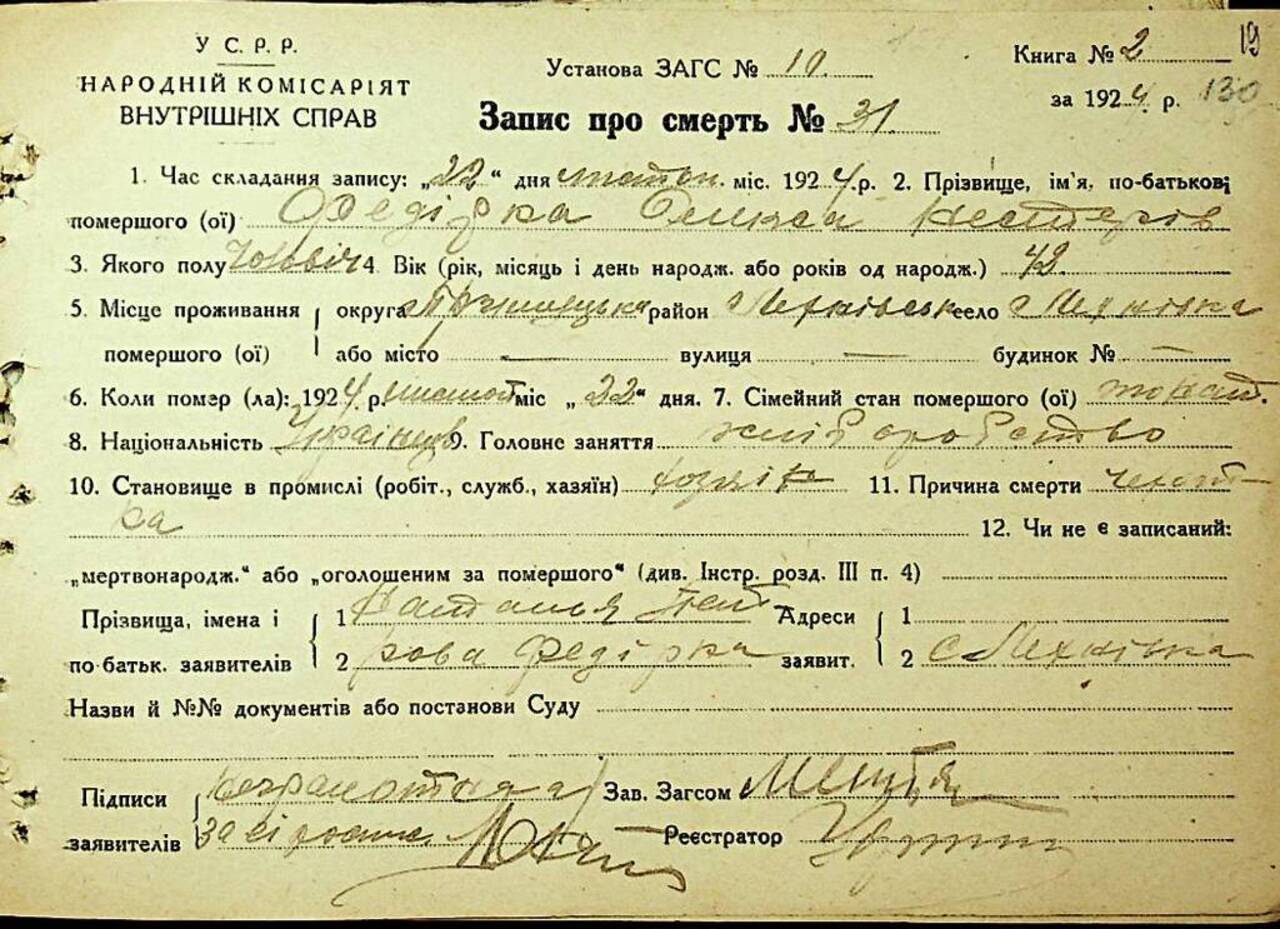 У С. Р. Р.
НАРОДНІЙ КОМІСАРІЯТ
ВНУТРІШНІХ СПРАВ
Установа ЗАГС № 10.
Книга № 2
19
за 1924 р. 130
Запис про смерть № 31.
1. Час складання запису: „22“ дня міс. 1924 р. 2. Прізвище, ім'я, по-батькові
помершого (ої) Федірка Олекса Нестерів
3. Якого полу чоловіч 4. Вік (рік, місяць і день народж. або років од народж.) 42
5. Місце проживання округа район село с Мехнівка
помершого (ої) або місто — вулиця — будинок № —
6. Коли помер (ла): 1924 р. міс „22“ дня. 7. Сімейний стан помершого (ої)
8. Національність Українців 9. Головне заняття хліборобство
10. Становище в промислі (робіт., служб., хазяїн) 11. Причина смерти
ка 12. Чи не є записаний:
„мертвонародж.“ або „оголошеним за помершого“ (див. Інстр. розд. III п. 4)
Прізвища, імена і 1 Наталья Пет Адреси 1
по батьк. заявителів 2 рова Федірка заявит. 2 с Мехнівка
Назви й №№ документів або постанови Суду
Підписи неграмотная Зав. Загсом
заявителів За Реєстратор